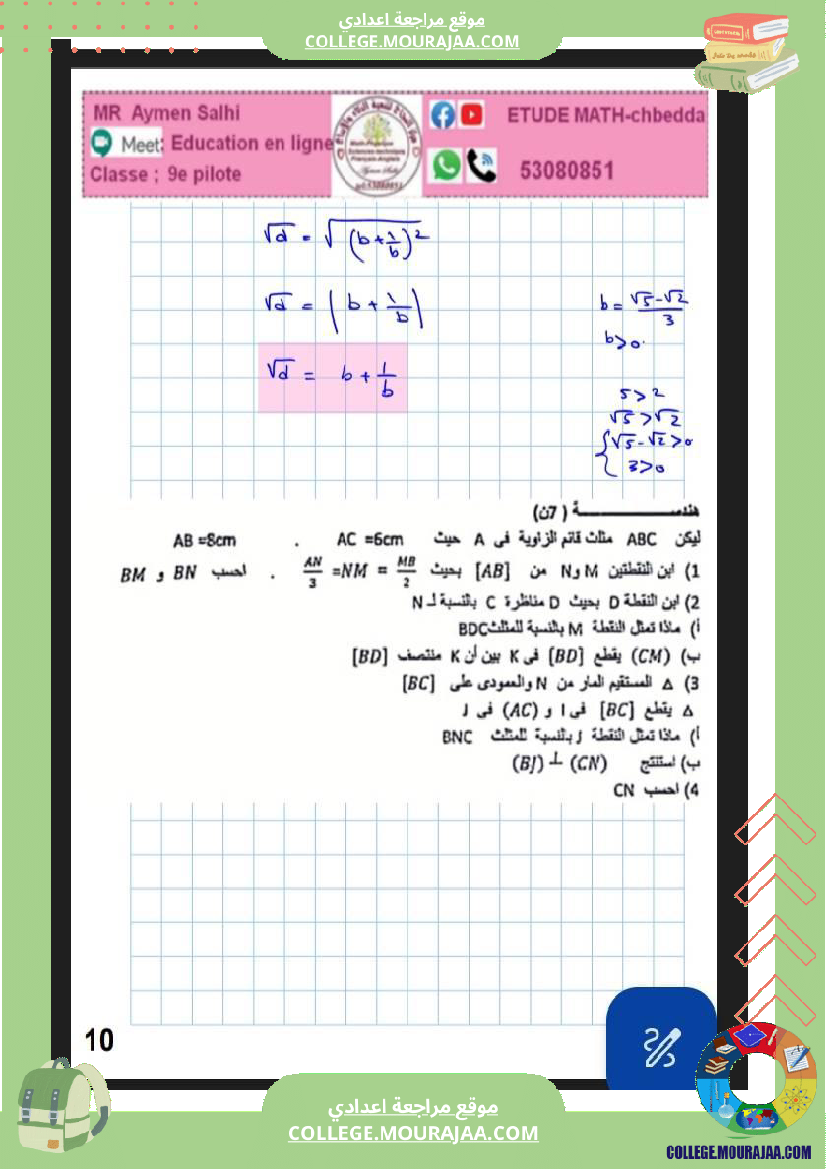 موقع مراجعة اعدادي
COLLEGE.MOURAJAA.COM
MR Aymen Salhi
Meet: Education en ligne
Classe ; 9e pilote
ETUDE MATH-chbedda
53080851
√d = √(b+1/b)²
√d = |b + 1/b|
√d = b + 1/b
b = (√5-√2)/3
b>0.
5>2
√5>√2
{√5-√2>0
3>0
هندســــــــــــة ( 7ن)
ليكن ABC مثلث قائم الزاوية في A حيث AC =6cm . AB =8cm
1) ابن النقطتين M وN من [AB] بحيث AN/3 =NM = MB/2 . احسب BN و BM
2) ابن النقطة D بحيث D مناظرة C بالنسبة لـ N
أ) ماذا تمثل النقطة M بالنسبة للمثلث BDC
ب) (CM) يقطع [BD] في K بين أن K منتصف [BD]
3) Δ المستقيم المار من N والعمودي على [BC]
Δ يقطع [BC] في I و (AC) في J
أ) ماذا تمثل النقطة J بالنسبة للمثلث BNC
ب) استنتج (CN) ⊥ (BJ)
4) احسب CN
10
موقع مراجعة اعدادي
COLLEGE.MOURAJAA.COM
COLLEGE.MOURAJAA.COM